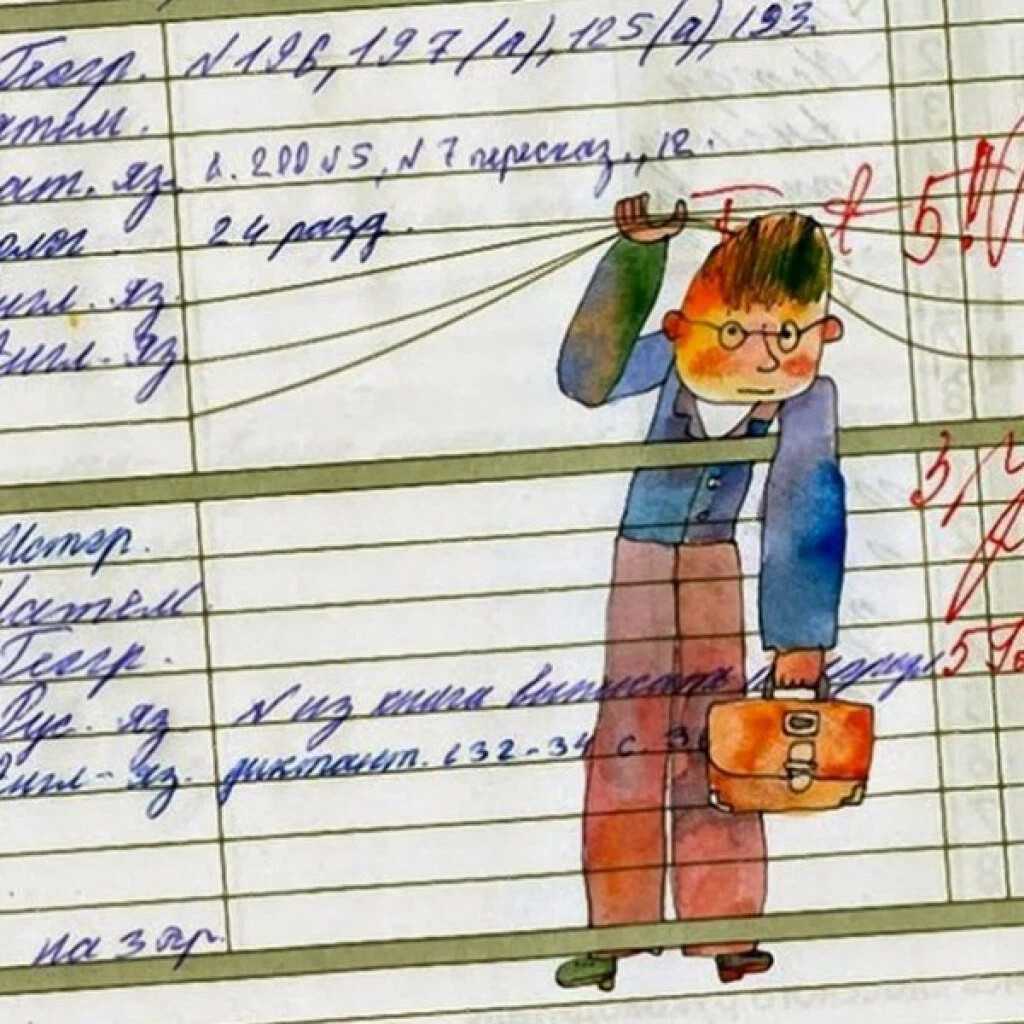 Геогр. №196, 197(а), 125(а), 193.
атем.
ат. яз. с. 200 №5, №7 пересказ.,
олог 24 разд.
нгл. яз.
Англ. яз
5!
Истор. 3
Матем
Геогр.
Рус. яз № из книги выписать 5
Англ. яз. диктант. с 32-34 с. 3
на 3 пр.